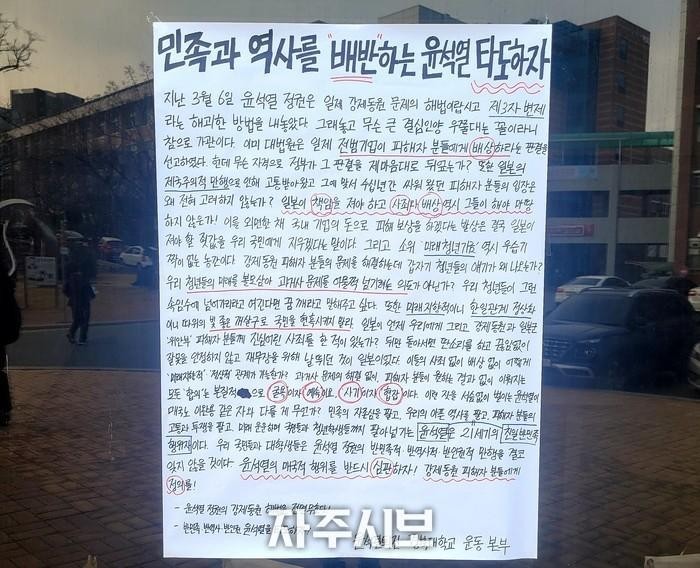 민족과 역사를 "배반"하는 윤석열 타도하자
지난 3월 6일 윤석열 정권은 일제 강제동원 문제의 해법이랍시고 제3자 변제
라는 해괴한 방법을 내놓았다. 그래놓고 무슨 큰 결심인양 우쭐대는 꼴이라니
참으로 가관이다. 이미 대법원은 일제 전범기업이 피해자 분들에게 배상하라는 판결을
선고하였다. 헌데 무슨 자격으로 정부가 그 판결을 제마음대로 뒤엎는가? 또한 일본의
제국주의적 만행으로 인해 고통받아왔고 그에 맞서 수십년간 싸워 왔던 피해자 분들의 입장은
왜 전혀 고려하지 않는가? 일본이 책임을 져야 하고 사죄와 배상 역시 그들이 해야 마땅
하지 않은가! 이를 외면한 채 국내 기업의 돈으로 피해 보상을 하겠다는 발상은 결국 일본이
져야 할 죗값을 우리 국민에게 지우겠다는 말이다. 그리고 소위 '미래청년기금' 역시 우습기
짝이 없는 농간이다. 강제동원 피해자 분들의 문제를 해결하는데 갑자기 청년들의 얘기가 왜 나오는가?
우리 청년들의 미래를 볼모삼아 과거사 문제를 어물쩡 넘기려는 의도가 아닌가? 우리 청년들이 그런
속임수에 넘어가리라고 여긴다면 꿈 깨라고 말해주고 싶다. 또한 미래지향적이니 한일관계 정상화
이니 따위의 빛 좋은 개살구로 국민을 현혹시키지 말라. 일본이 언제 우리에게 그리고 강제동원과 일본군
'위안부' 피해자 분들께 진심어린 사죄를 한 적이 있는가? 뒤편 돌아서면 딴소리를 하고 끊임없이
잘못을 인정하지 않고 재무장을 위해 날뛰던 것이 일본이었다. 이들의 사죄 없이 배상 없이 어떻게
"미래지향적" "정상적" 관계가 가능한가? 과거사 문제의 해결 없이, 피해자 분들이 원하는 결과 없이 이뤄지는
모든 '합의'는 본질적으로 굴욕이자 예속이요, 사기이자 협잡이다. 이런 작을 서슴없이 벌이는 윤석열이
매국노 이완용 같은 자와 다를 게 무언가? 민족의 자존심을 팔고, 우리의 아픈 역사를 팔고, 피해자 분들의
고통과 투쟁을 팔고, 미래 운운하며 국민들과 청년학생들까지 팔아넘기는 윤석열은 21세기의 친일반민족
행위자이다. 우리 국민들과 대학생들은 윤석열 정권의 반민족적·반역사적·반인권적 만행을 결코
잊지 않을 것이다. 윤석열의 매국적 행위를 반드시 심판하자! 강제동원 피해자 분들에게
정의를!
- 윤석열 정권의 강제동원
- 반민족 반역사 반인권 윤석열을
대학교 운동 본부
자주시보